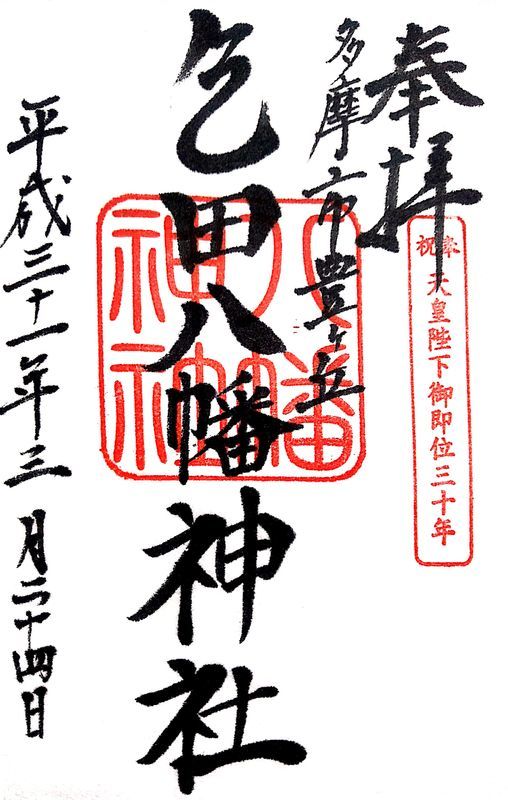 奉拝
奉祝 天皇陛下御即位三十年
多摩市豊ヶ丘
乞田八幡神社
八幡神社
平成三十一年三月二十四日